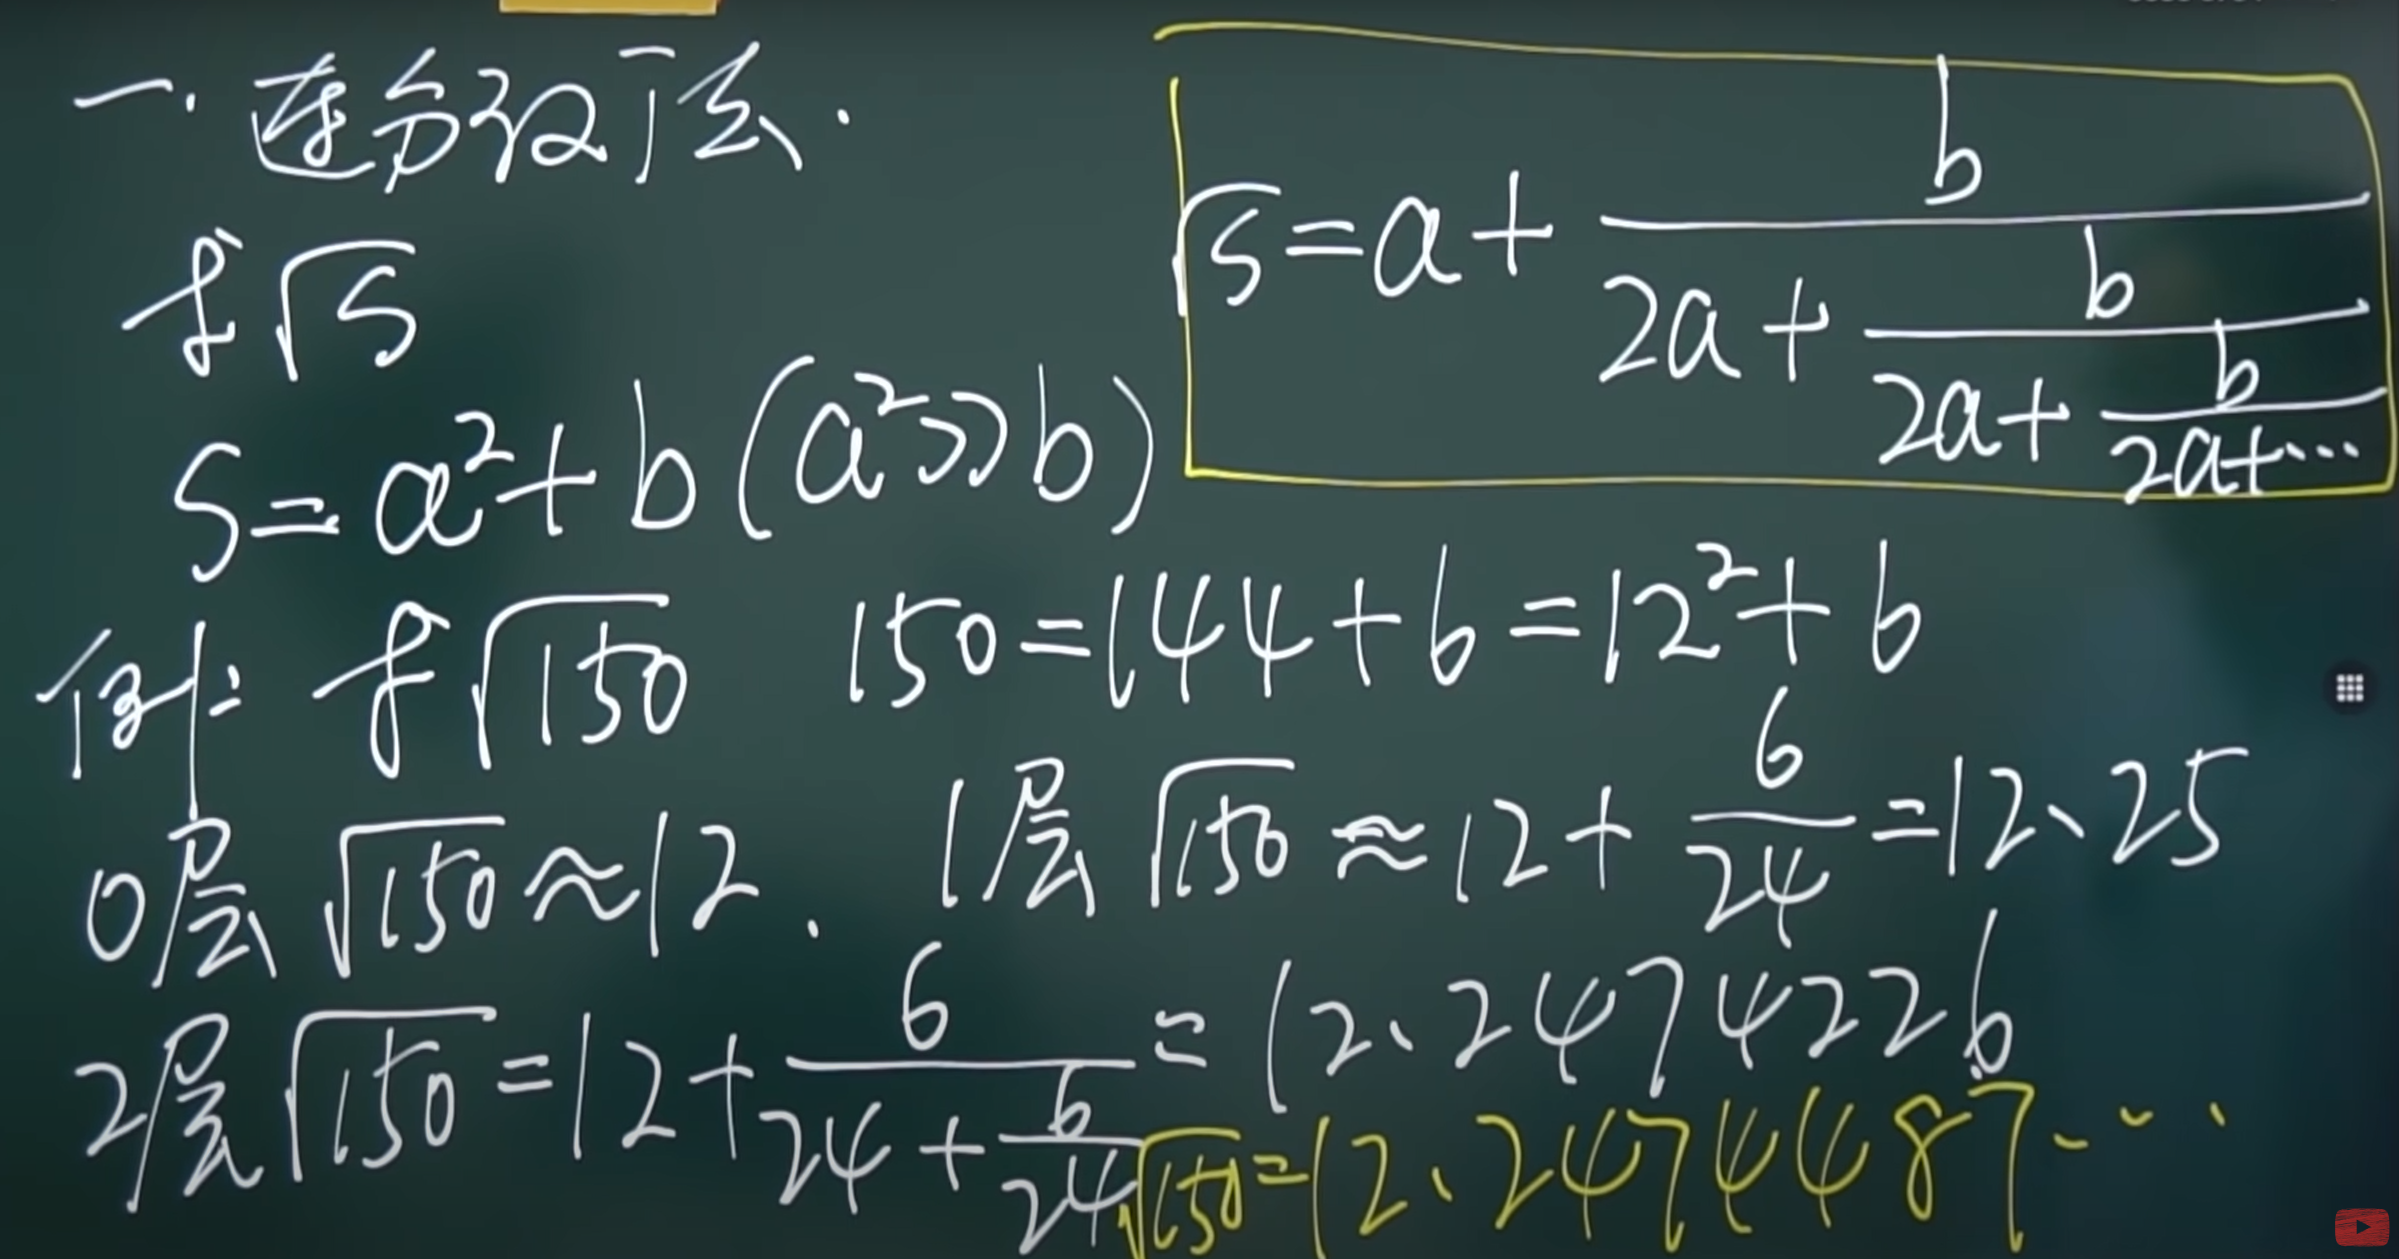 一. 连分数法.
求√S
S=a²+b(a²>>b)
√S=a+b/(2a+b/(2a+b/(2a+⋯)))
例: 求√150 150=144+6=12²+6
0层 √150≈12. 1层 √150≈12+6/24=12.25
2层 √150=12+6/(24+6/24)=12.2474226
√150=12.2474487⋯